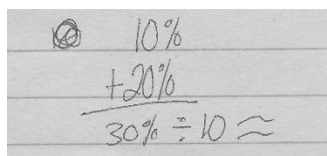 10%
+20%
30% ÷ 10 ≈